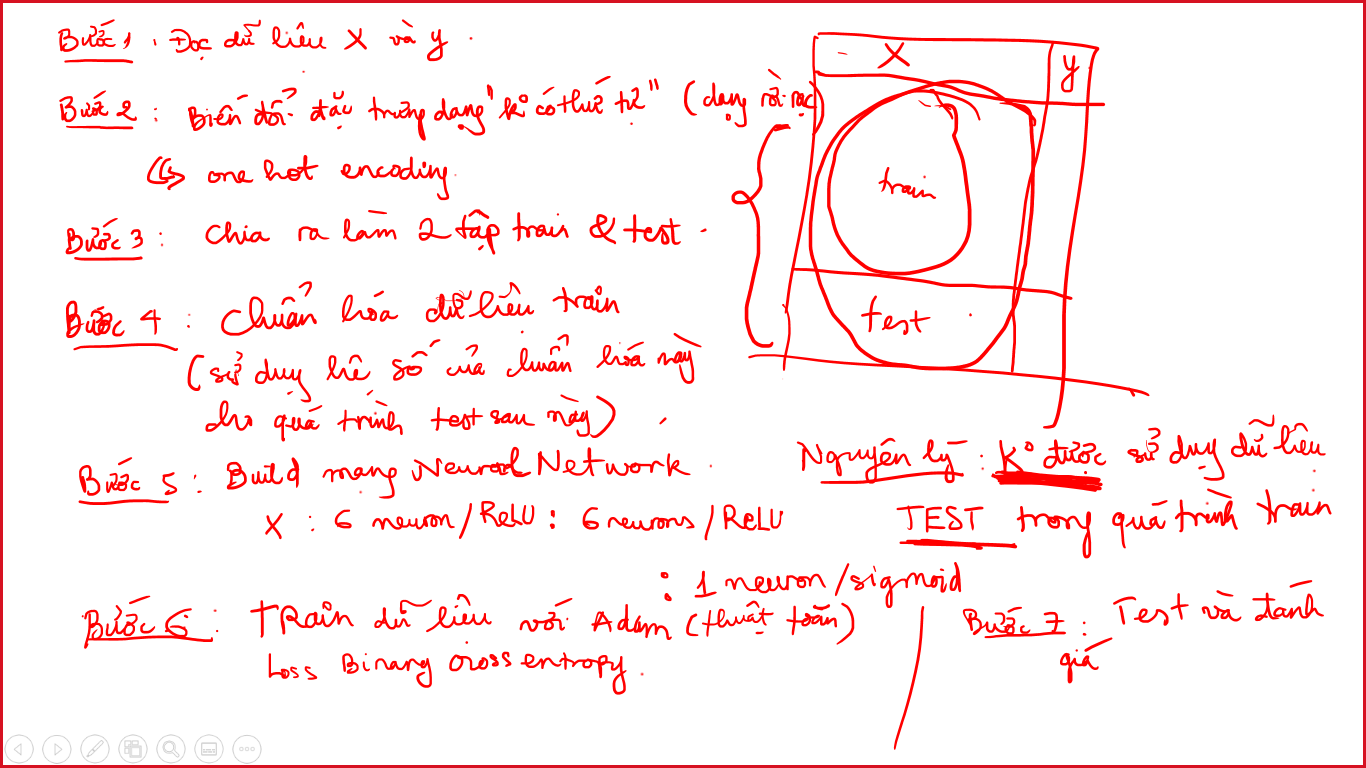 Bước 1 : Đọc dữ liệu X và y.
Bước 2 : Biến đổi đặc trưng dạng "k° có thứ tự" (dạng rời rạc)
↳ one hot encoding.
Bước 3 : Chia ra làm 2 tập train & test.
Bước 4 : Chuẩn hóa dữ liệu train
(sử dụng hệ số của chuẩn hóa này
cho quá trình test sau này).
Bước 5 : Build mạng Neural Network.
X : 6 neuron/ReLU : 6 neurons/ReLU
: 1 neuron/sigmoid
Bước 6 : TRain dữ liệu với Adam (thuật toán)
Loss Binary cross entropy.
X
y
train
test
Nguyên lý : K° được sử dụng dữ liệu
TEST trong quá trình train
Bước 7 : Test và đánh
giá